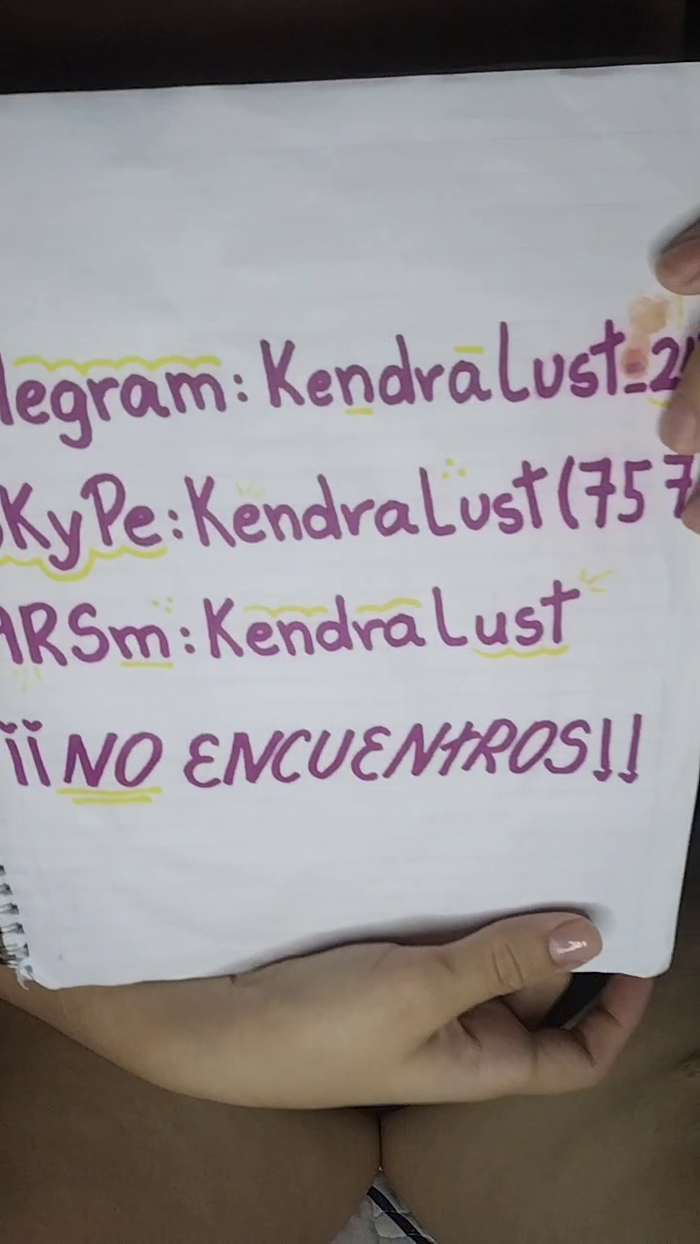 legram: KendraLust_2
KyPe: KendraLust (757
ARSm: KendraLust
¡¡NO ENCUENTROS!!